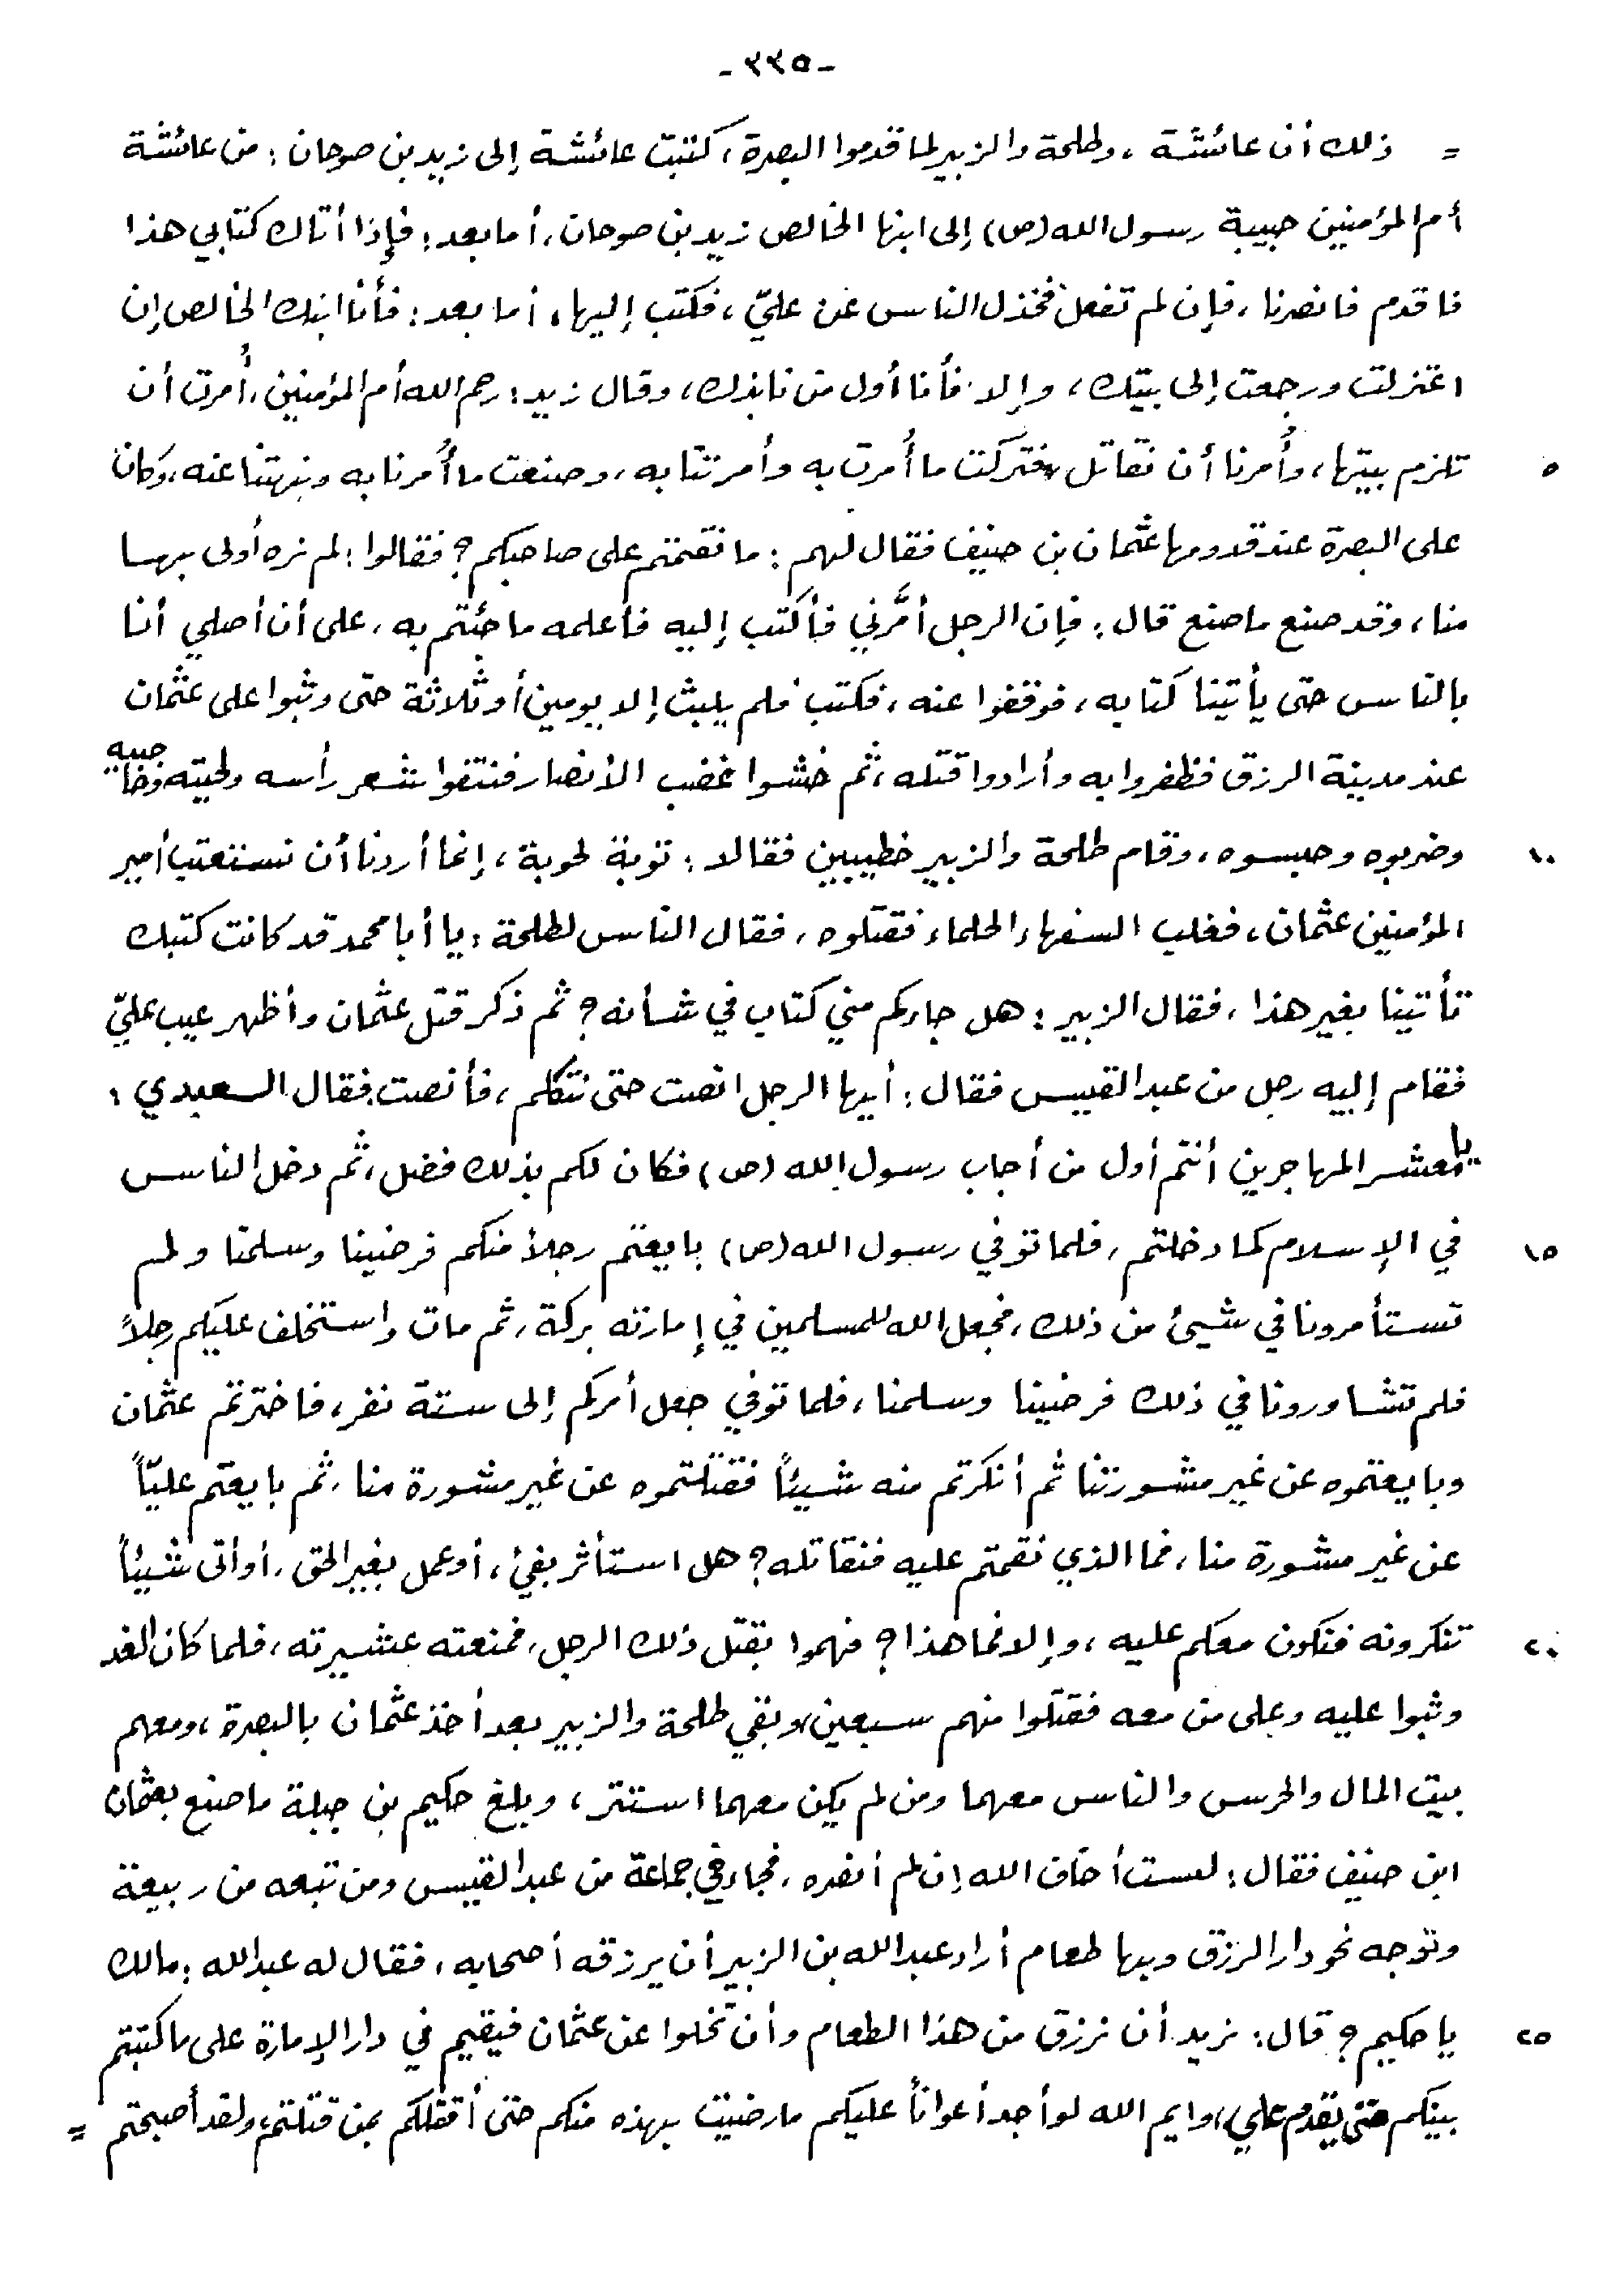 - ٣٣٥ -
= ذلك أن عائشة ، وطلحة والزبير لما قدموا البصرة ، كتبت عائشة إلى زيد بن صوحان : من عائشة
أم المؤمنين حبيبة رسول الله (ص) إلى ابنها الخالص زيد بن صوحان ، أما بعد : فإذا أتاك كتابي هذا
فاقدم فانصرنا ، فإن لم تفعل فخذل الناس عن عليّ ، فكتب إليها ، أما بعد : فأنا ابنك الخالص إن
اعتزلت ورجعت إلى بيتك ، وإلا فأنا أول من نابذك ، وقال زيد : رحم الله أم المؤمنين ، أُمرت أن
٥ تلزم بيتها ، وأُمرنا أن نقاتل ، فتركت ما أُمرت به وأمرتنا به ، وصنعت ما أُمرنا به ونهتنا عنه ، وكان
على البصرة عند قدومها عثمان بن حنيف فقال لهم : ما نقمتم على صاحبكم ؟ فقالوا : لم نره أولى بها
منا ، وقد صنع ما صنع قال : فإن الرجل أمَّرني فأكتب إليه فأعلمه ما جئتم به ، على أن أصلي أنا
بالناس حتى يأتينا كتابه ، فوقفوا عنه ، فكتب فلم يلبث إلا يومين أو ثلاثة حتى وثبوا على عثمان
عند مدينة الرزق فظفروا به وأرادوا قتله ، ثم خشوا غضب الأنصار فنتفوا شعر رأسه ولحيته وحاجبيه
١٠ وضربوه وحبسوه ، وقام طلحة والزبير خطيبين فقالا : توبة لحوبة ، إنما أردنا أن نستعتب أمير
المؤمنين عثمان ، فغلب السفهاء الحلماء فقتلوه ، فقال الناس لطلحة : يا أبا محمد قد كانت كتبك
تأتينا بغير هذا ، فقال الزبير : هل جاءكم مني كتاب في شأنه ؟ ثم ذكر قتل عثمان وأظهر عيب عليّ
فقام إليه رجل من عبد القيس فقال : أيها الرجل انصت حتى نتكلم ، فأنصت فقال السعيدي :
يا معشر المهاجرين أنتم أول من أجاب رسول الله (ص) فكان لكم بذلك فضل ، ثم دخل الناس
١٥ في الإسلام كما دخلتم ، فلما توفي رسول الله (ص) بايعتم رجلاً منكم فرضينا وسلمنا ولم
تستأمرونا في شيئ من ذلك ، فجعل الله للمسلمين في إمارته بركة ، ثم مات واستخلف عليكم رجلاً
فلم تشاورونا في ذلك فرضينا وسلمنا ، فلما توفي جعل أمركم إلى ستة نفر ، فاخترتم عثمان
وبايعتموه عن غير مشورتنا ثم أنكرتم منه شيئاً فقتلتموه عن غير مشورة منا ، ثم بايعتم عليّاً
عن غير مشورة منا ، فما الذي نقمتم عليه فنقاتله ؟ هل استأثر بفيئ ، أو عمل بغير الحق ، أو أتى شيئاً
٢٠ تنكرونه فنكون معكم عليه ، وإلا فما هذا ؟ فهموا بقتل ذلك الرجل ، فمنعته عشيرته ، فلما كان الغد
وثبوا عليه وعلى من معه فقتلوا منهم سبعين ، وبقي طلحة والزبير بعد أخذ عثمان بالبصرة ، ومعهم
بيت المال والحرس والناس معهما ومن لم يكن معهما استتر ، وبلغ حكيم بن جبلة ما صنع بعثمان
ابن حنيف فقال : لست أخاف الله إن لم أنصره ، فجاء في جماعة من عبد القيس ومن تبعه من ربيعة
وتوجه نحو دار الرزق وبها طعام أراد عبد الله بن الزبير أن يرزقه أصحابه ، فقال له عبد الله : مالك
٢٥ يا حكيم ؟ قال : نريد أن نرزق من هذا الطعام وأن تخلوا عن عثمان فيقيم في دار الإمارة على ما كتبتم
بينكم حتى يقدم علي ، وايم الله لو أجد أعواناً عليكم ما رضيت بهذه منكم حتى أقتلكم بمن قتلتم ، ولقد أصبحتم =